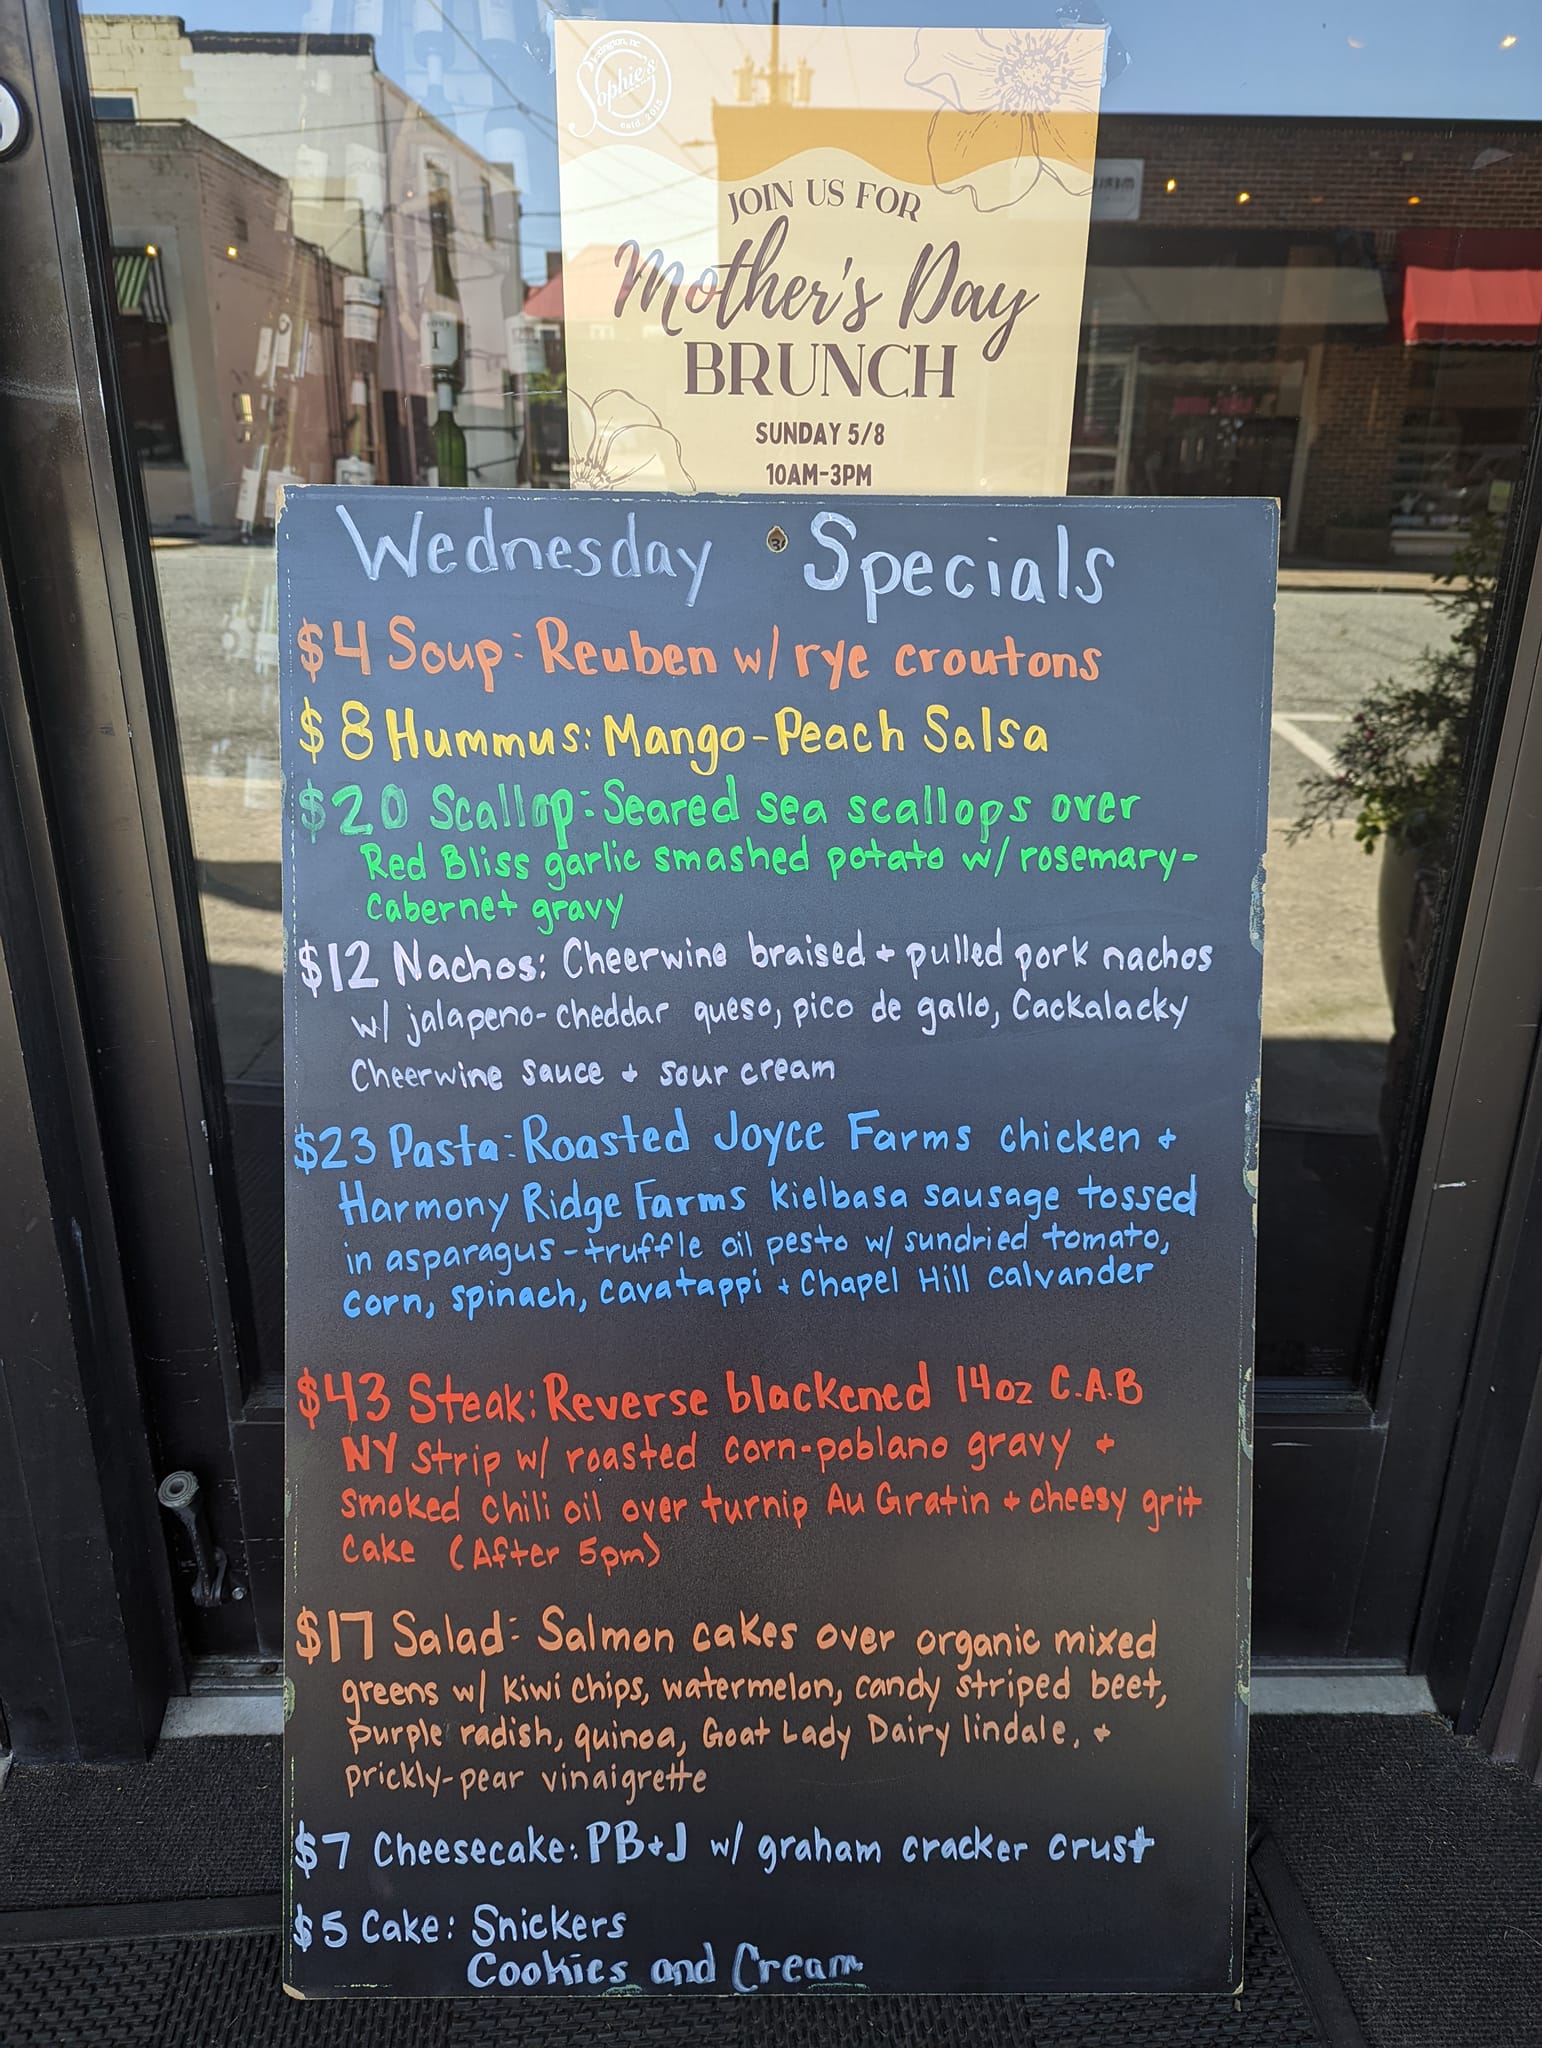 Lexington, NC
Sophie's
estd. 2015
JOIN US FOR
Mother's Day
BRUNCH
SUNDAY 5/8
10AM-3PM
Wednesday Specials
$4 Soup: Reuben w/ rye croutons
$8 Hummus: Mango-Peach Salsa
$20 Scallop: Seared sea scallops over
Red Bliss garlic smashed potato w/ rosemary-
Cabernet gravy
$12 Nachos: Cheerwine braised + pulled pork nachos
w/ jalapeno-cheddar queso, pico de gallo, Cackalacky
Cheerwine sauce + sour cream
$23 Pasta: Roasted Joyce Farms chicken +
Harmony Ridge Farms Kielbasa sausage tossed
in asparagus-truffle oil pesto w/ sundried tomato,
corn, spinach, cavatappi + Chapel Hill calvander
$43 Steak: Reverse blackened 14oz C.A.B
NY Strip w/ roasted corn-poblano gravy +
smoked chili oil over turnip Au Gratin + cheesy grit
cake (After 5pm)
$17 Salad: Salmon cakes over organic mixed
greens w/ kiwi chips, watermelon, candy striped beet,
purple radish, quinoa, Goat Lady Dairy lindale, +
prickly-pear vinaigrette
$7 Cheesecake: PB+J w/ graham cracker crust
$5 Cake: Snickers
Cookies and Cream